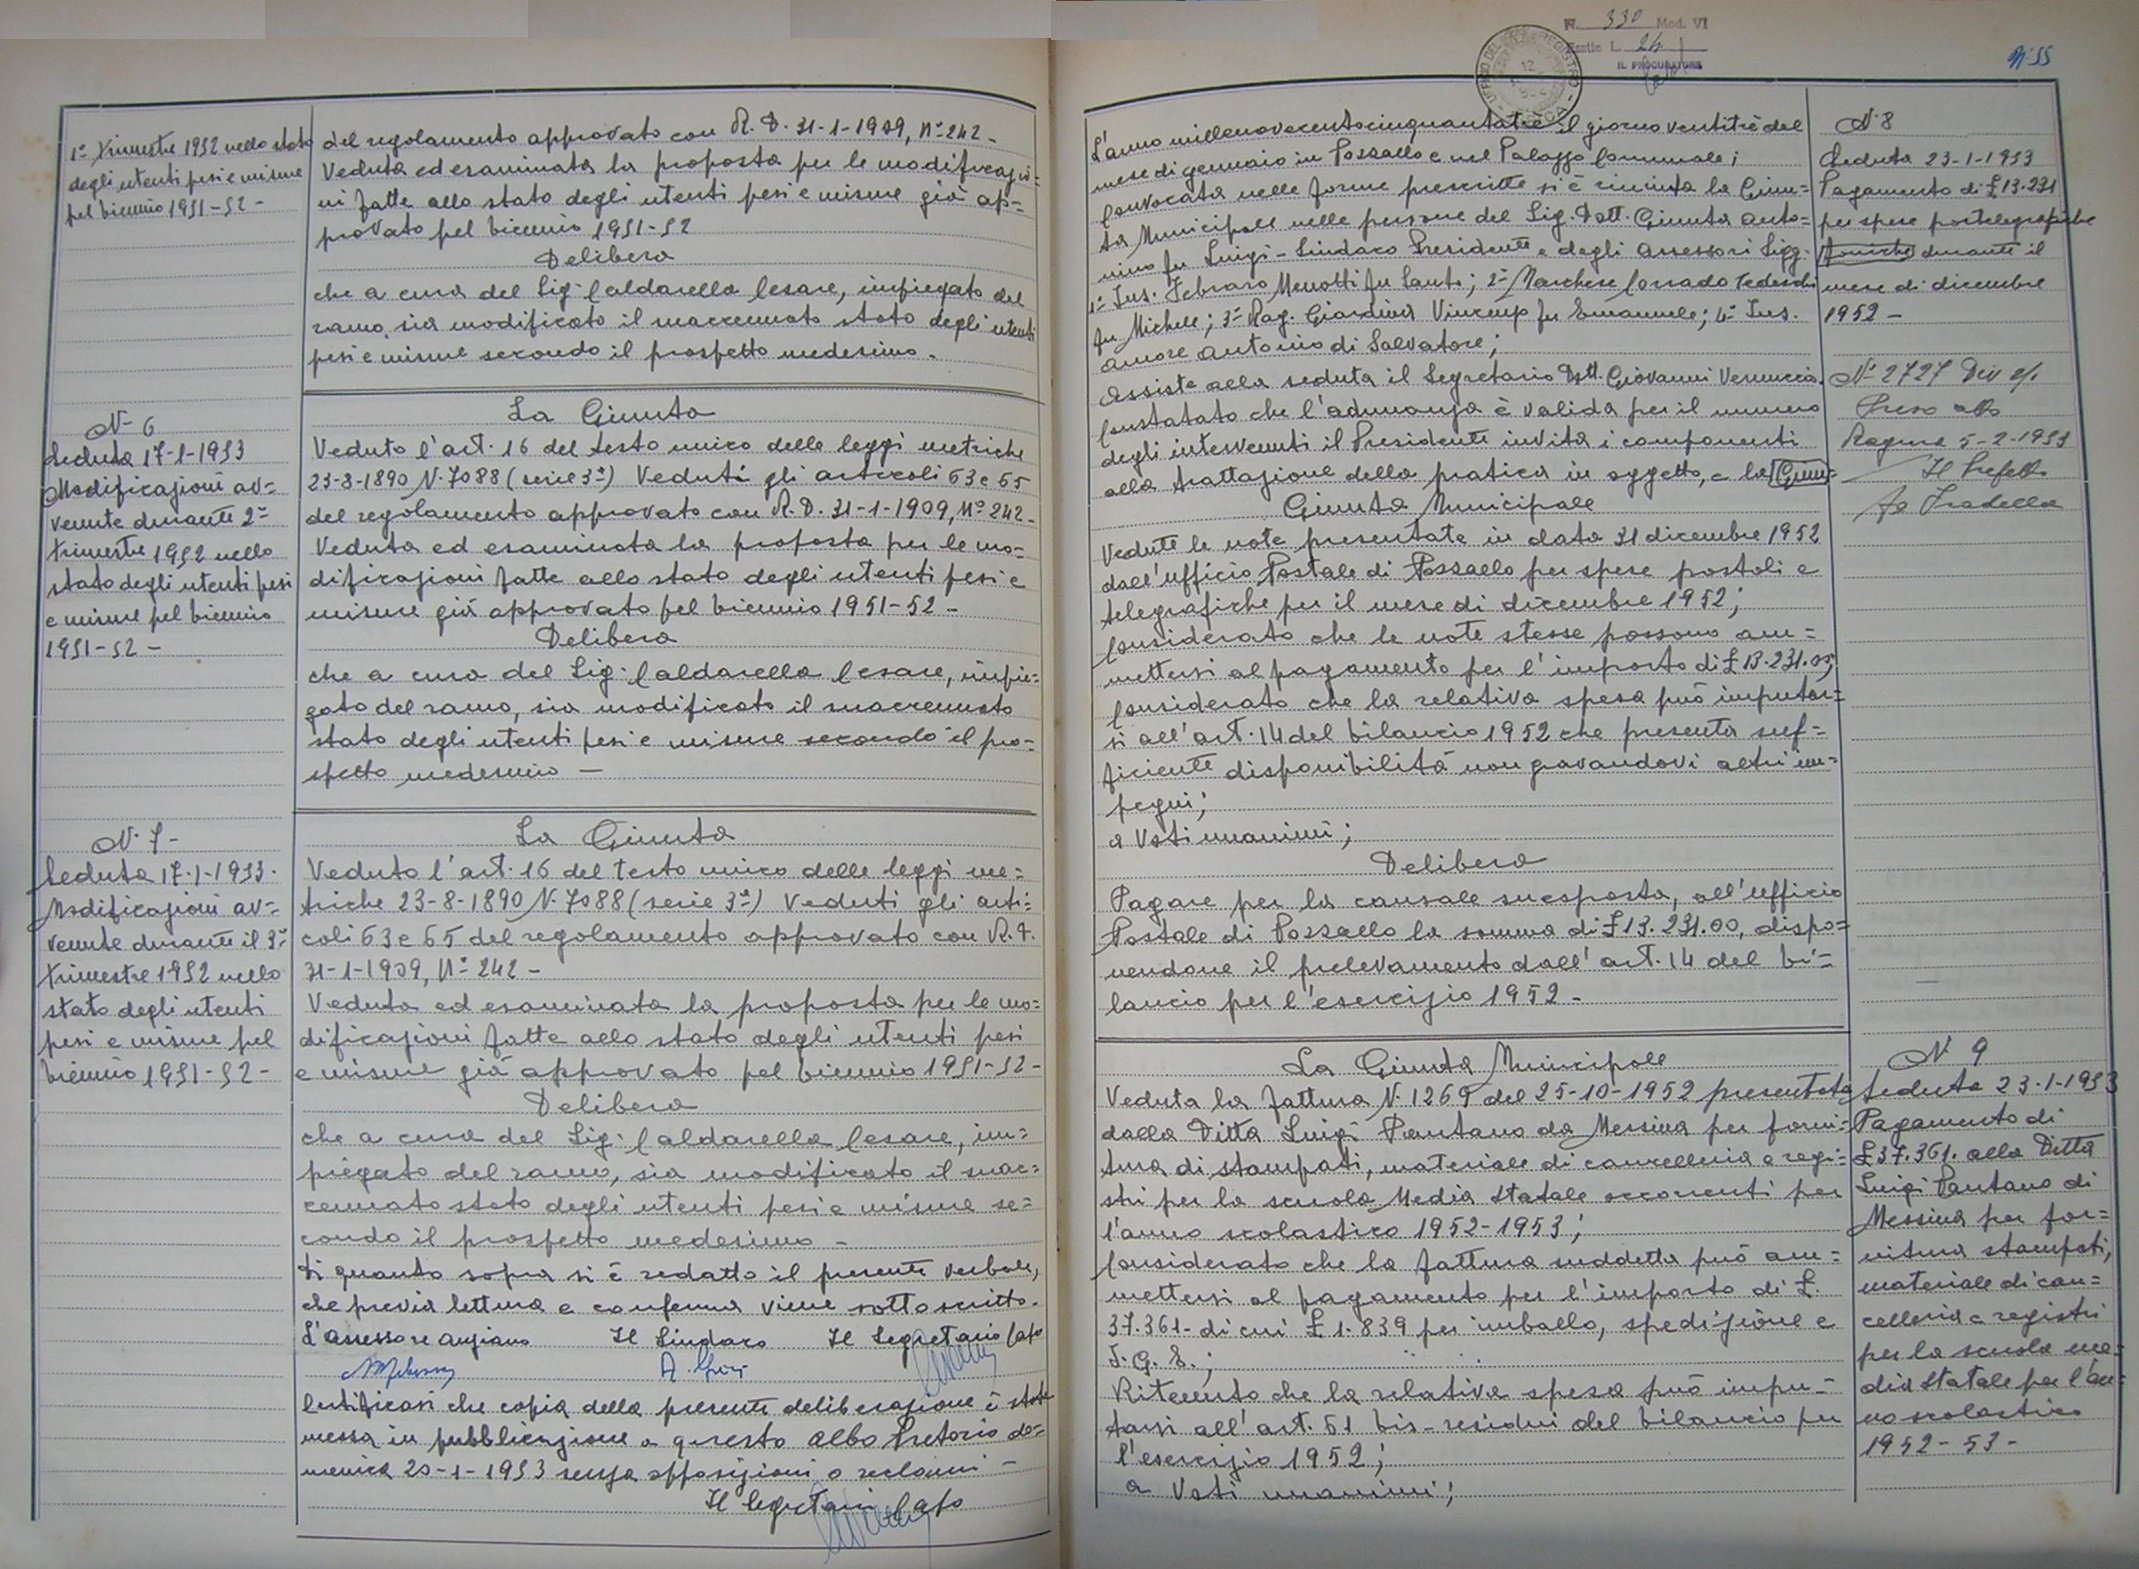 1° trimestre 1952 nello stato
degli utenti pesi e misure
pel biennio 1951-52 -
del regolamento approvato con R. D. 31-1-1909, N° 242 -
Veduta ed esaminata la proposta per le modificazio=
ni fatte allo stato degli utenti pesi e misure già ap=
provato pel biennio 1951-52
Delibera
che a cura del Sig. Caldarella Cesare, impiegato del
ramo, sia modificato il suaccennato stato degli utenti
pesi e misure secondo il prospetto medesimo.
N° 6
Seduta 17-1-1953
Modificazioni av=
venute durante 2°
trimestre 1952 nello
stato degli utenti pesi
e misure pel biennio
1951-52 -
La Giunta
Veduto l'art. 16 del testo unico delle leggi metriche
23-8-1890 N. 7088 (serie 3ª) Veduti gli articoli 63 e 65
del regolamento approvato con R. D. 31-1-1909, N° 242 -
Veduta ed esaminata la proposta per le mo=
dificazioni fatte allo stato degli utenti pesi e
misure già approvato pel biennio 1951-52 -
Delibera
che a cura del Sig. Caldarella Cesare, impie=
gato del ramo, sia modificato il suaccennato
stato degli utenti pesi e misure secondo il pro=
spetto medesimo -
N. 7 -
Seduta 17-1-1953.
Modificazioni av=
venute durante il 3°
trimestre 1952 nello
stato degli utenti
pesi e misure pel
biennio 1951-52 -
La Giunta
Veduto l'art. 16 del testo unico delle leggi me=
triche 23-8-1890 N. 7088 (serie 3ª) Veduti gli arti=
coli 63 e 65 del regolamento approvato con R. D.
31-1-1909, N° 242 -
Veduta ed esaminata la proposta per le mo=
dificazioni fatte allo stato degli utenti pesi
e misure già approvato pel biennio 1951-52 -
Delibera
che a cura del Sig. Caldarella Cesare, im=
piegato del ramo, sia modificato il suac=
cennato stato degli utenti pesi e misure se=
condo il prospetto medesimo -
Di quanto sopra si è redatto il presente verbale,
che previa lettura e conferma viene sottoscritto.
L'assessore anziano Il Sindaco Il Segretario Capo
Certificasi che copia della presente deliberazione è stata
messa in pubblicazione a questo Albo Pretorio do=
menica 20-1-1953 senza opposizioni o reclami -
Il Segretario Capo
N. 330 Mod. VI
Esatte L. 24
IL PROCURATORE
UFFICIO DEL REGISTRO
12
N. 55
L'anno millenovecentocinquantatre il giorno ventitrè del
mese di gennaio in Pozzallo e nel Palazzo Comunale;
Convocata nelle forme prescritte si è riunita la Giun=
ta Municipale nelle persone del Sig. Dott. Giunta Anto=
nino fu Luigi - Sindaco Presidente e degli Assessori Sigg.
1° Ins. Febraro Menotti fu Santi; 2° Marchese Corrado Tedeschi
fu Michele; 3° Rag. Giardina Vincenzo fu Emanuele; 4° Ins.
Amore Antonio di Salvatore;
Assiste alla seduta il Segretario Dott. Giovanni Vernuccio.
Constatato che l'adunanza è valida per il numero
degli intervenuti il Presidente invita i componenti
alla trattazione della pratica in oggetto, e la Giun=
Giunta Municipale
Vedute le note presentate in data 31 dicembre 1952
dall'ufficio Postale di Pozzallo per spese postali e
telegrafiche per il mese di dicembre 1952;
Considerato che le note stesse possono am=
mettersi al pagamento per l'importo di £ 13.231.00;
Considerato che la relativa spesa può imputar=
si all'art. 14 del bilancio 1952 che presenta suf=
ficiente disponibilità non gravandovi altri im=
pegni;
a Voti unanimi;
Delibera
Pagare per la causale suesposta, all'ufficio
Postale di Pozzallo la somma di £ 13.231.00, dispo=
nendone il prelevamento dall'art. 14 del bi=
lancio per l'esercizio 1952 -
N° 8
Seduta 23-1-1953
Pagamento di £ 13.231
per spese postelegrafiche
foniche durante il
mese di dicembre
1952 -
N° 2727 Div
Preso atto
Ragusa 5-2-1953
Il Prefetto
La Giunta Municipale
Veduta la fattura N. 1269 del 25-10-1952 presentata
dalla Ditta Luigi Pantano da Messina per forni=
tura di stampati, materiale di cancelleria e regi=
stri per la scuola Media Statale occorrenti per
l'anno scolastico 1952-1953;
Considerato che la fattura suddetta può am=
mettersi al pagamento per l'importo di £.
37.361 - di cui £ 1.839 per imballo, spedizione e
I. G. E.;
Ritenuto che la relativa spesa può impu=
tarsi all'art. 51 bis - residui del bilancio per
l'esercizio 1952;
a Voti unanimi;
N. 9
Seduta 23-1-1953
Pagamento di
£ 37.361. alla Ditta
Luigi Pantano di
Messina per for=
nitura stampati,
materiale di can=
celleria e registri
per la scuola me=
dia statale per l'an=
no scolastico
1952-53 -